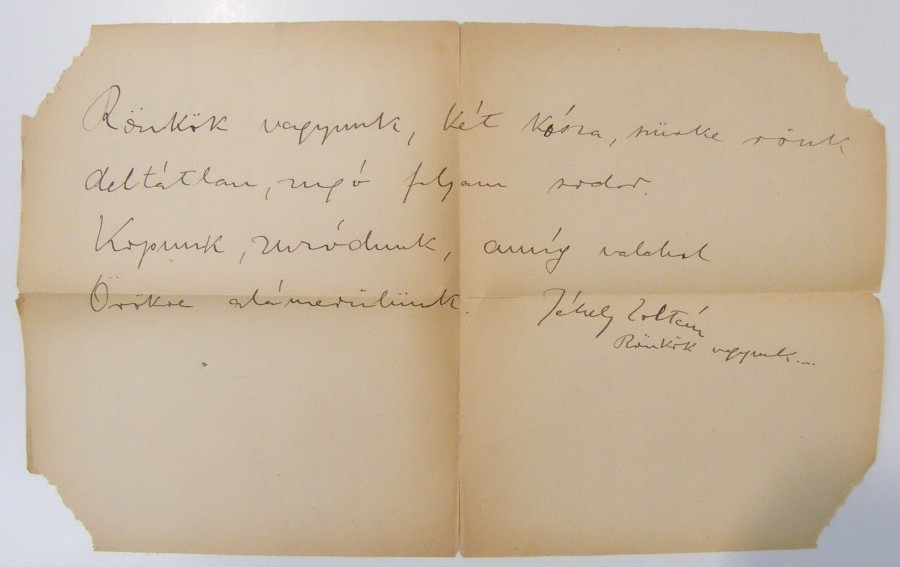 Rönkök vagyunk, két kósza, szürke rönk
deltátlan, zugó folyam sodor.
Kopunk, zuzódunk, amíg valahol
Örökre alámerülünk.
Jékely Zoltán
Rönkök vagyunk...